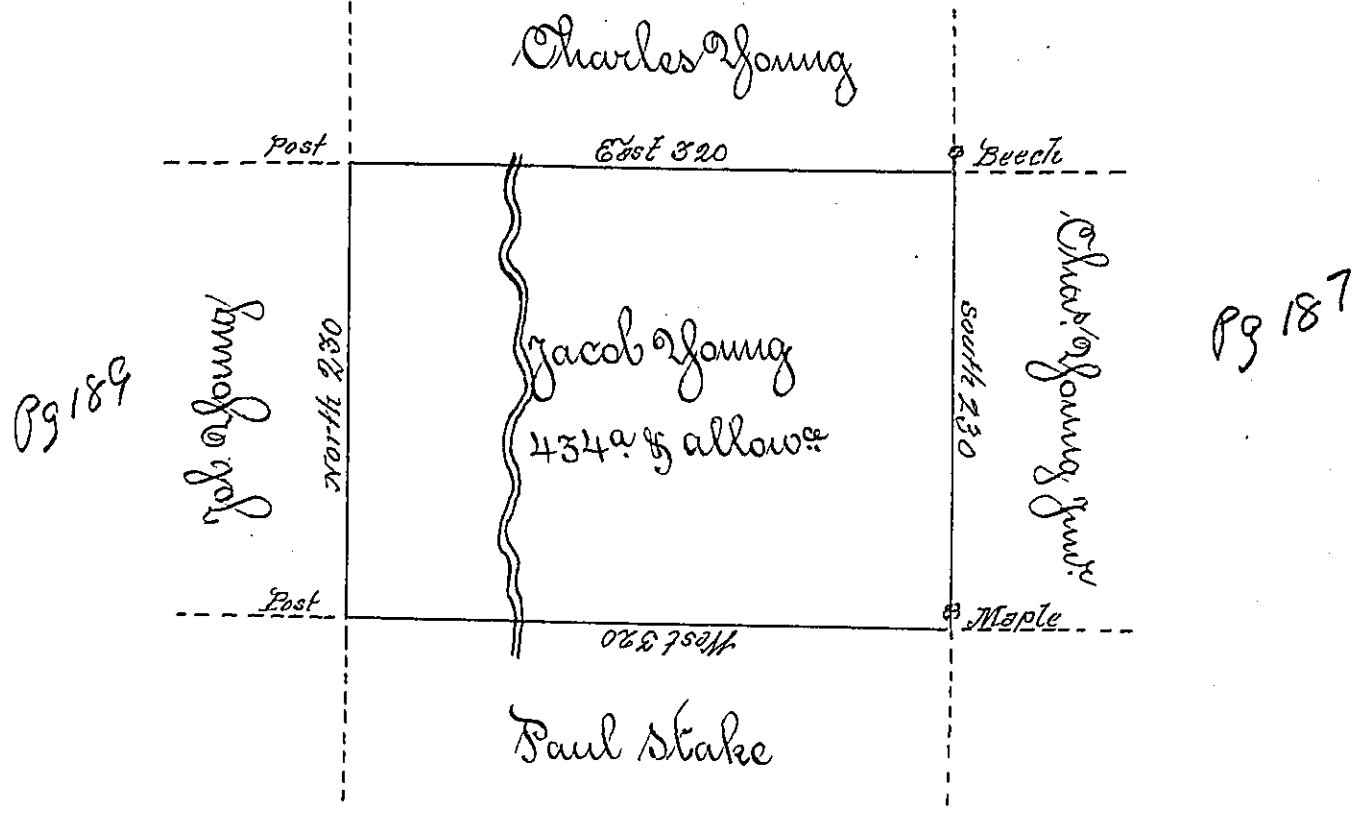 Charles Young
Post
East 320
Beech
Pg 189
Job. Young
North 230
Jacob Young
434a. & allowce
South 230
Chas. Young Junr.
Pg 187
Post
West 320
Maple
Paul Stake